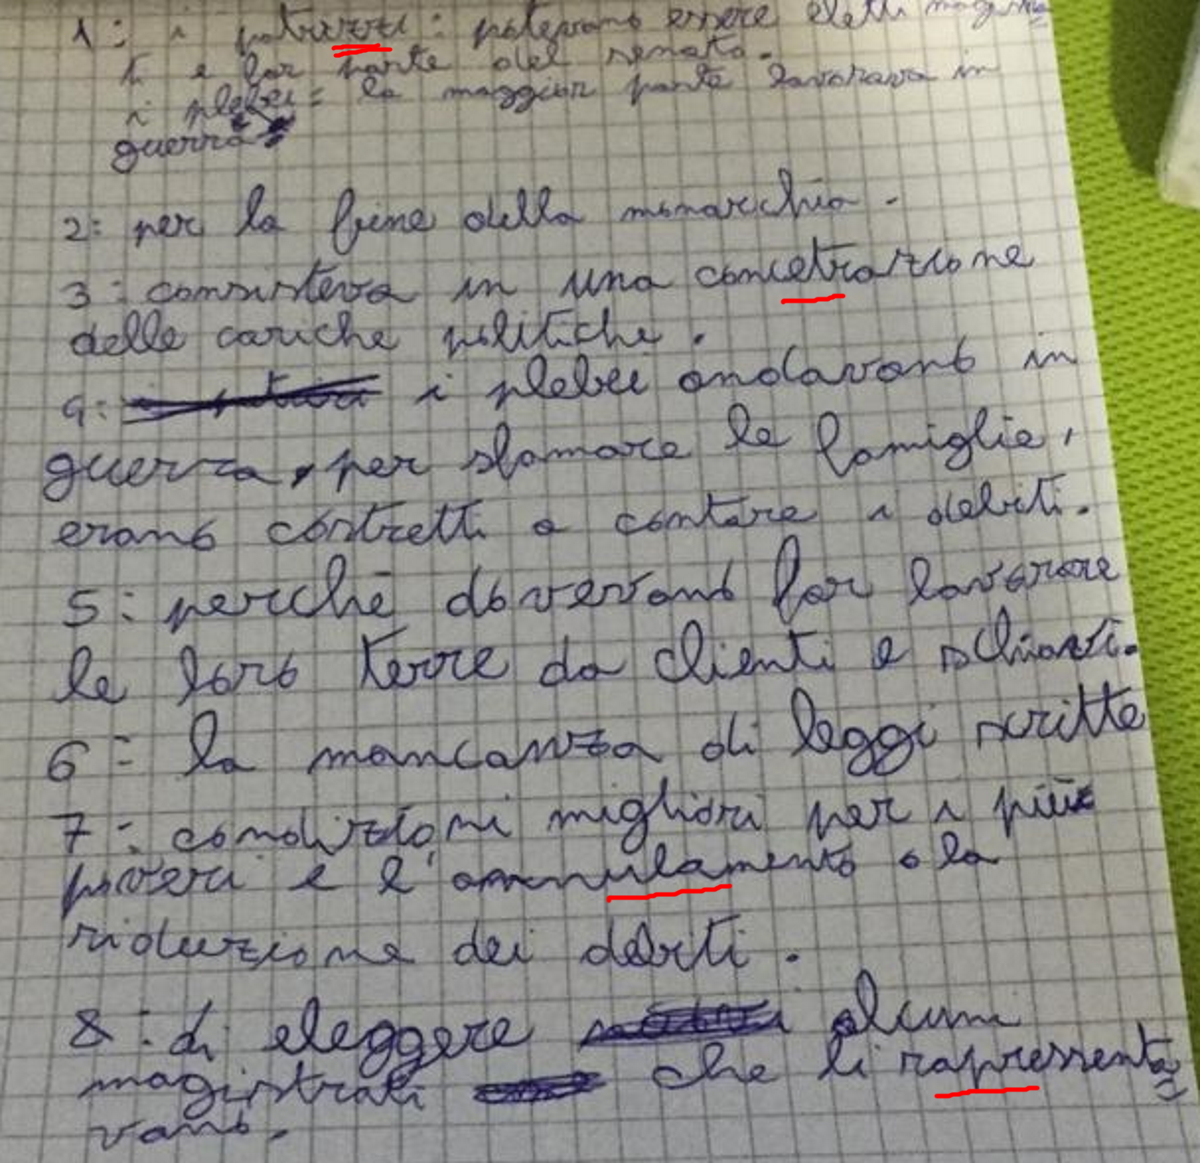 1: i patrizzi: potevano essere eletti magistra
ti e far parte del senato.
i plebei = la maggior parte lavorava in
guerra
2: per la fine della monarchia.
3: consisteva in una concetrazione
delle cariche politiche.
4: i plebei andavano in
guerra, per sfamare le famiglie,
erano costretti a contare i debiti.
5: perchè dovevano far lavorare
le loro terre da clienti e schiavi.
6: la mancanza di leggi scritte
7: condizioni migliori per i più
poveri e l'annulamento o la
riduzione dei debiti.
8: di eleggere alcuni
magistrati che li rapressenta
vano.